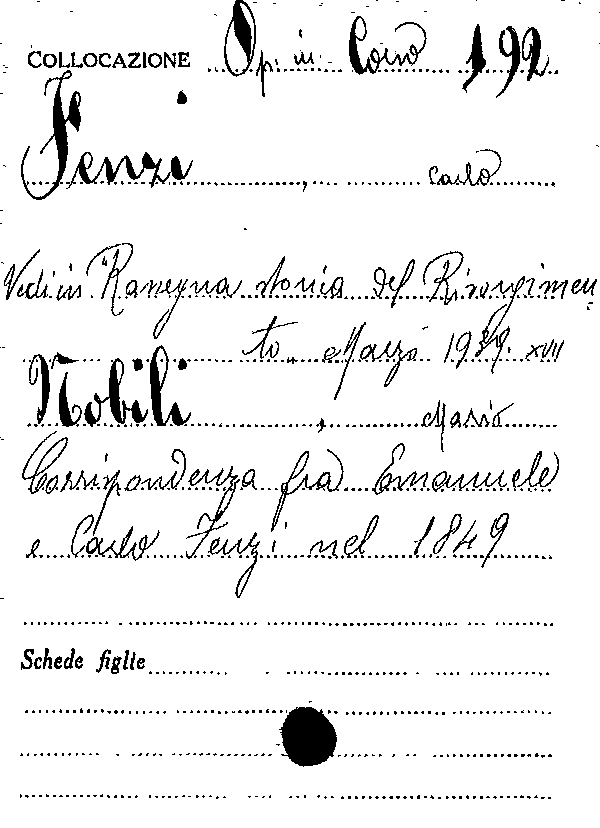 COLLOCAZIONE Op. in Corso 192
Fenzi, Carlo
Vedi in "Rassegna storica del Risorgimen-
to" Marzo 1939. XVII
Nobili, Mario
Corrispondenza fra Emanuele
e Carlo Fenzi nel 1849
Schede figlie